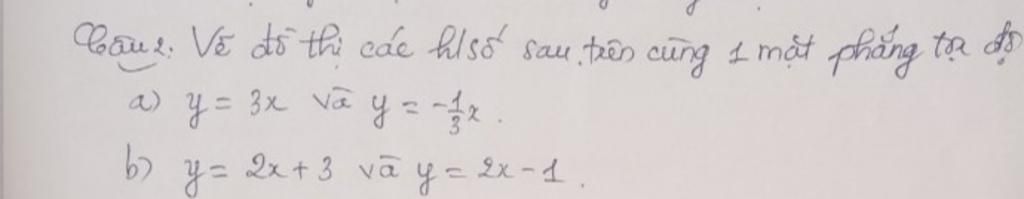 Câu 2. Vẽ đồ thị các h/số sau trên cùng 1 mặt phẳng tọa độ
a) y = 3x và y = -1/3x.
b) y = 2x + 3 và y = 2x - 1.